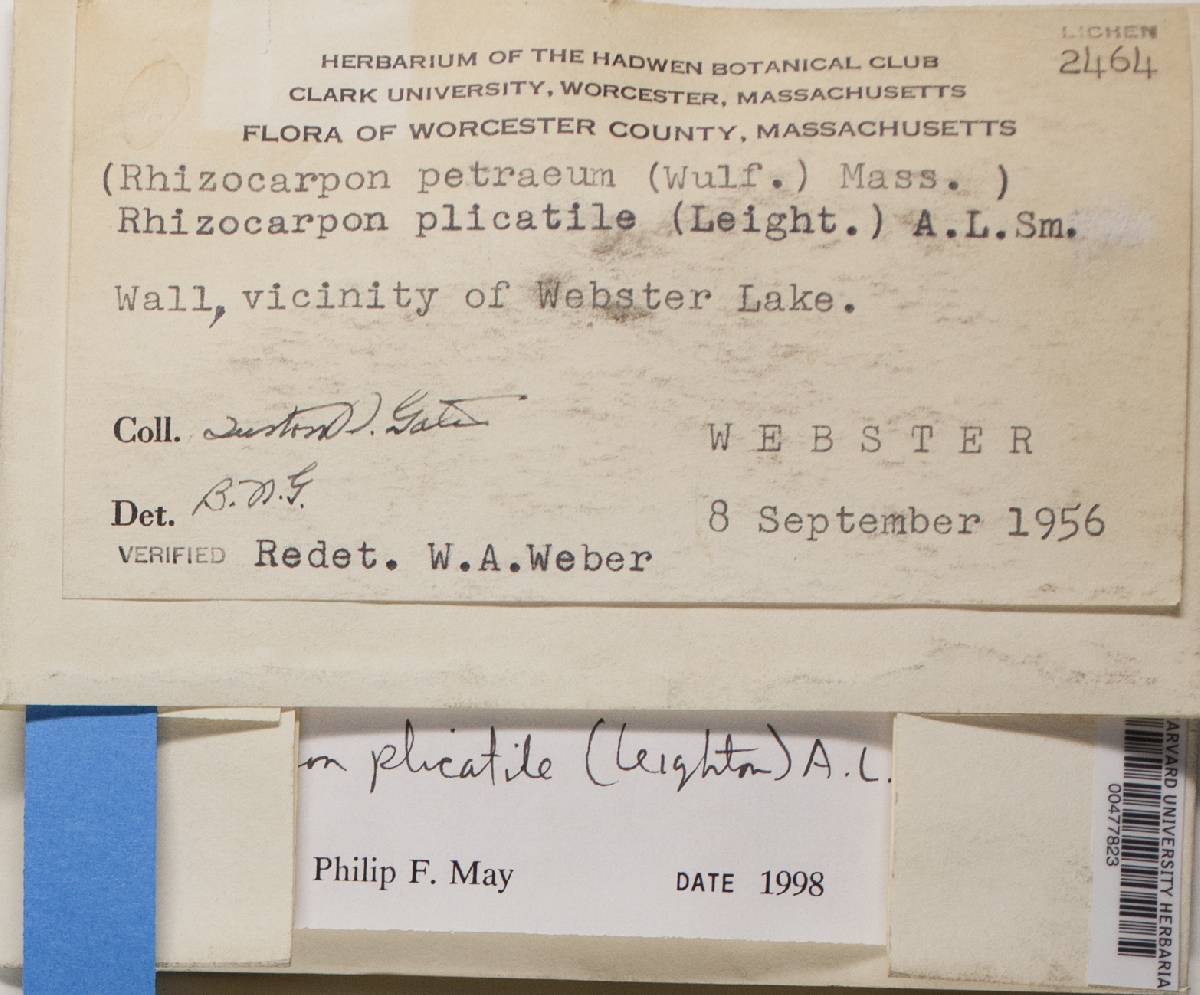 LICHEN
2464
HERBARIUM OF THE HADWEN BOTANICAL CLUB
CLARK UNIVERSITY, WORCESTER, MASSACHUSETTS
FLORA OF WORCESTER COUNTY, MASSACHUSETTS
(Rhizocarpon petraeum (Wulf.) Mass. )
Rhizocarpon plicatile (Leight.) A.L.Sm.
Wall, vicinity of Webster Lake.
Coll. D. Gates
WEBSTER
Det. B.N.G.
8 September 1956
VERIFIED Redet. W.A.Weber
on plicatile (Leighton) A.L.
Philip F. May DATE 1998
ARVARD UNIVERSITY HERBARIA
00477823